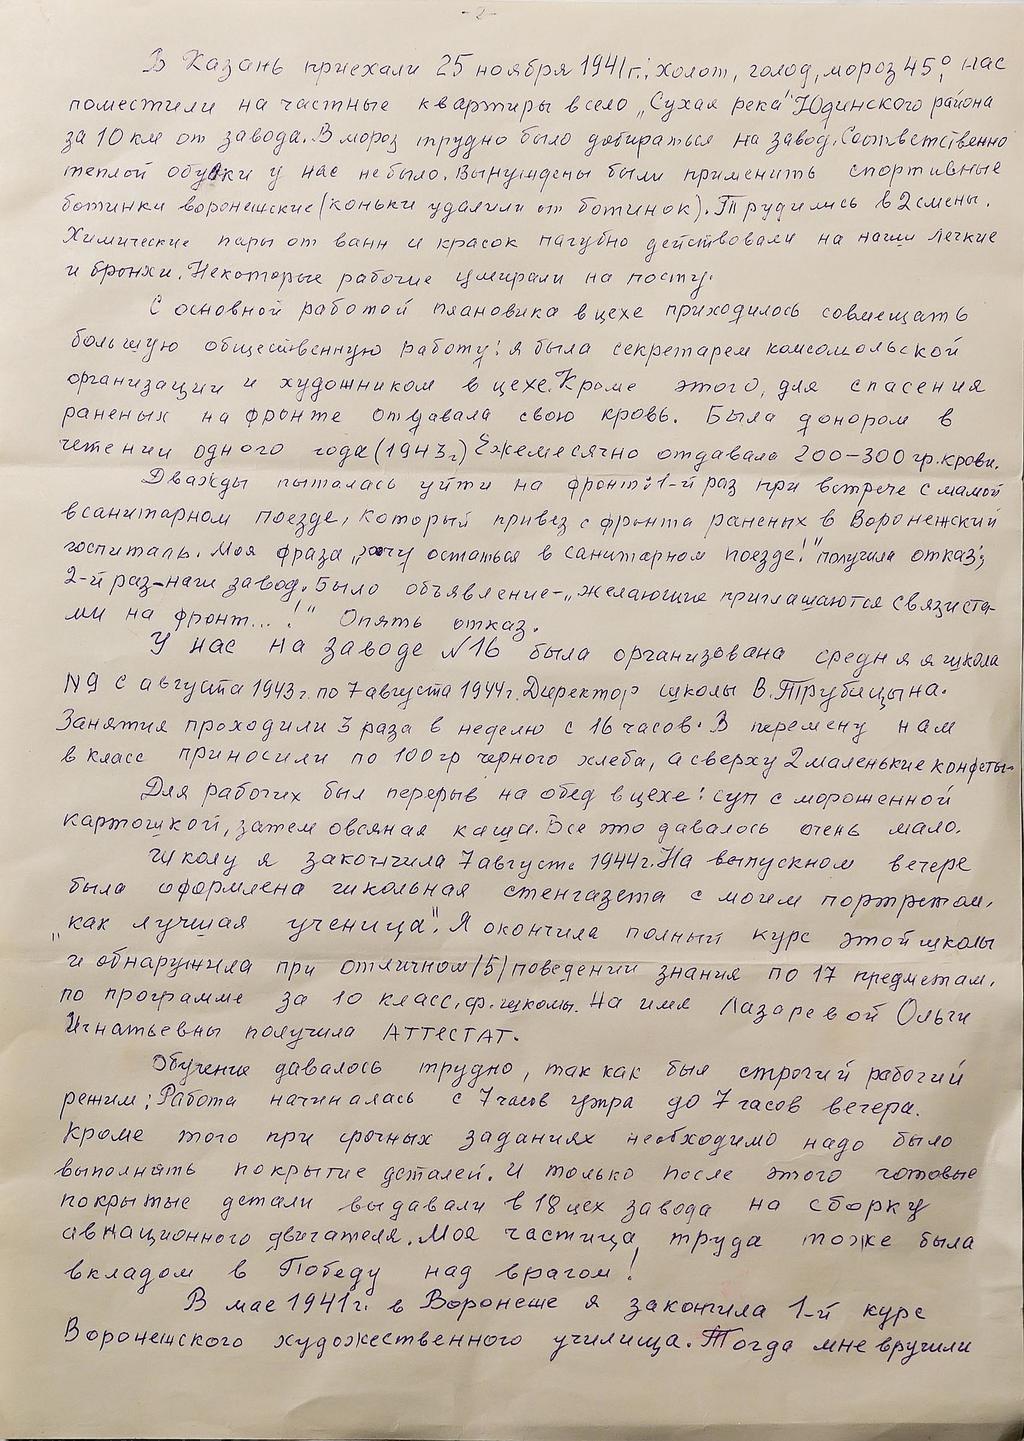 -2-
В Казань приехали 25 ноября 1941 г.; холод, голод, мороз 45°, нас
поместили на частные квартиры в село „Сухая река" Юдинского района
за 10 км от завода. В мороз трудно было добираться на завод. Соответственно
теплой обувки у нас не было. Вынуждены были применить спортивные
ботинки воронежские (коньки удалили от ботинок). Трудились в 2 смены.
Химические пары от ванн и красок пагубно действовали на наши легкие
и бронхи. Некоторые рабочие умирали на посту.
С основной работой плановика в цехе приходилось совмещать
большую общественную работу: я была секретарем комсомольской
организации и художником в цехе. Кроме этого, для спасения
раненых на фронте отдавала свою кровь. Была донором в
течении одного года (1943 г.) Ежемесячно отдавала 200-300 гр. крови.
Дважды пыталась уйти на фронт: 1-й раз при встрече с мамой
в санитарном поезде, который привез с фронта раненых в Воронежский
госпиталь. Моя фраза „хочу остаться в санитарном поезде!" получила отказ;
2-й раз-наш завод. Было объявление-„желающие приглашаются связиста-
ми на фронт...!" Опять отказ.
У нас на заводе N16 была организована средняя школа
N9 с августа 1943 г. по 7 августа 1944 г. Директор школы В. Трубицына.
Занятия проходили 3 раза в неделю с 16 часов. В перемену нам
в класс приносили по 100 гр черного хлеба, а сверху 2 маленькие конфеты.
Для рабочих был перерыв на обед в цехе: суп с мороженной
картошкой, затем овсяная каша. Все это давалось очень мало.
Школу я закончила 7 августа 1944 г. На выпускном вечере
была оформлена школьная стенгазета с моим портретом,
„как лучшая ученица". Я окончила полный курс этой школы
и обнаружила при отличном (5) поведении знания по 17 предметам,
по программе за 10 класс, ф. школы. На имя Лазаревой Ольги
Игнатьевны получила АТТЕСТАТ.
Обучение давалось трудно, так как был строгий рабочий
режим: Работа начиналась с 7 часов утра до 7 часов вечера.
Кроме того при срочных заданиях необходимо надо было
выполнять покрытие деталей. И только после этого готовые
покрытые детали выдавали в 18 цех завода на сборку
авиационного двигателя. Моя частица труда тоже была
вкладом в Победу над врагом!
В мае 1941 г. в Воронеже я закончила 1-й курс
Воронежского художественного училища. Тогда мне вручили